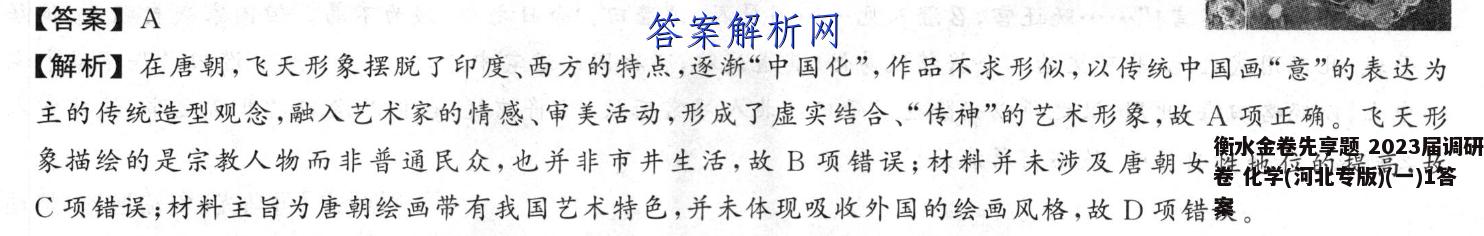 【答案】A
答案解析网
【解析】在唐朝,飞天形象摆脱了印度、西方的特点,逐渐“中国化”,作品不求形似,以传统中国画“意”的表达为
主的传统造型观念,融入艺术家的情感、审美活动,形成了虚实结合、“传神”的艺术形象,故 A 项正确。飞天形
象描绘的是宗教人物而非普通民众,也并非市井生活,故 B 项错误;材料并未涉及唐朝女性地位的提高,故
衡水金卷先享题 2023届调研
卷 化学(河北专版)(一)1答
案
C 项错误;材料主旨为唐朝绘画带有我国艺术特色,并未体现吸收外国的绘画风格,故 D 项错误。